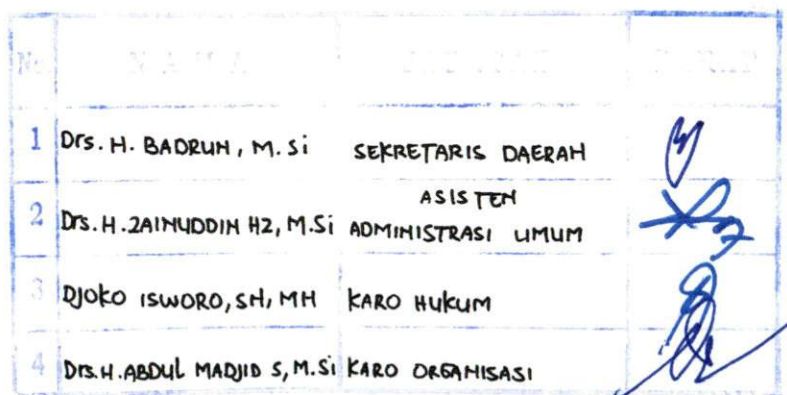 No N A M A
1 Drs. H. BADRUN, M. Si SEKRETARIS DAERAH
ASISTEN
2 Drs. H. ZAINUDDIN HZ, M.Si ADMINISTRASI UMUM
3 DJOKO ISWORO, SH, MH KARO HUKUM
4 Drs. H. ABDUL MADJID S, M.Si KARO ORGANISASI